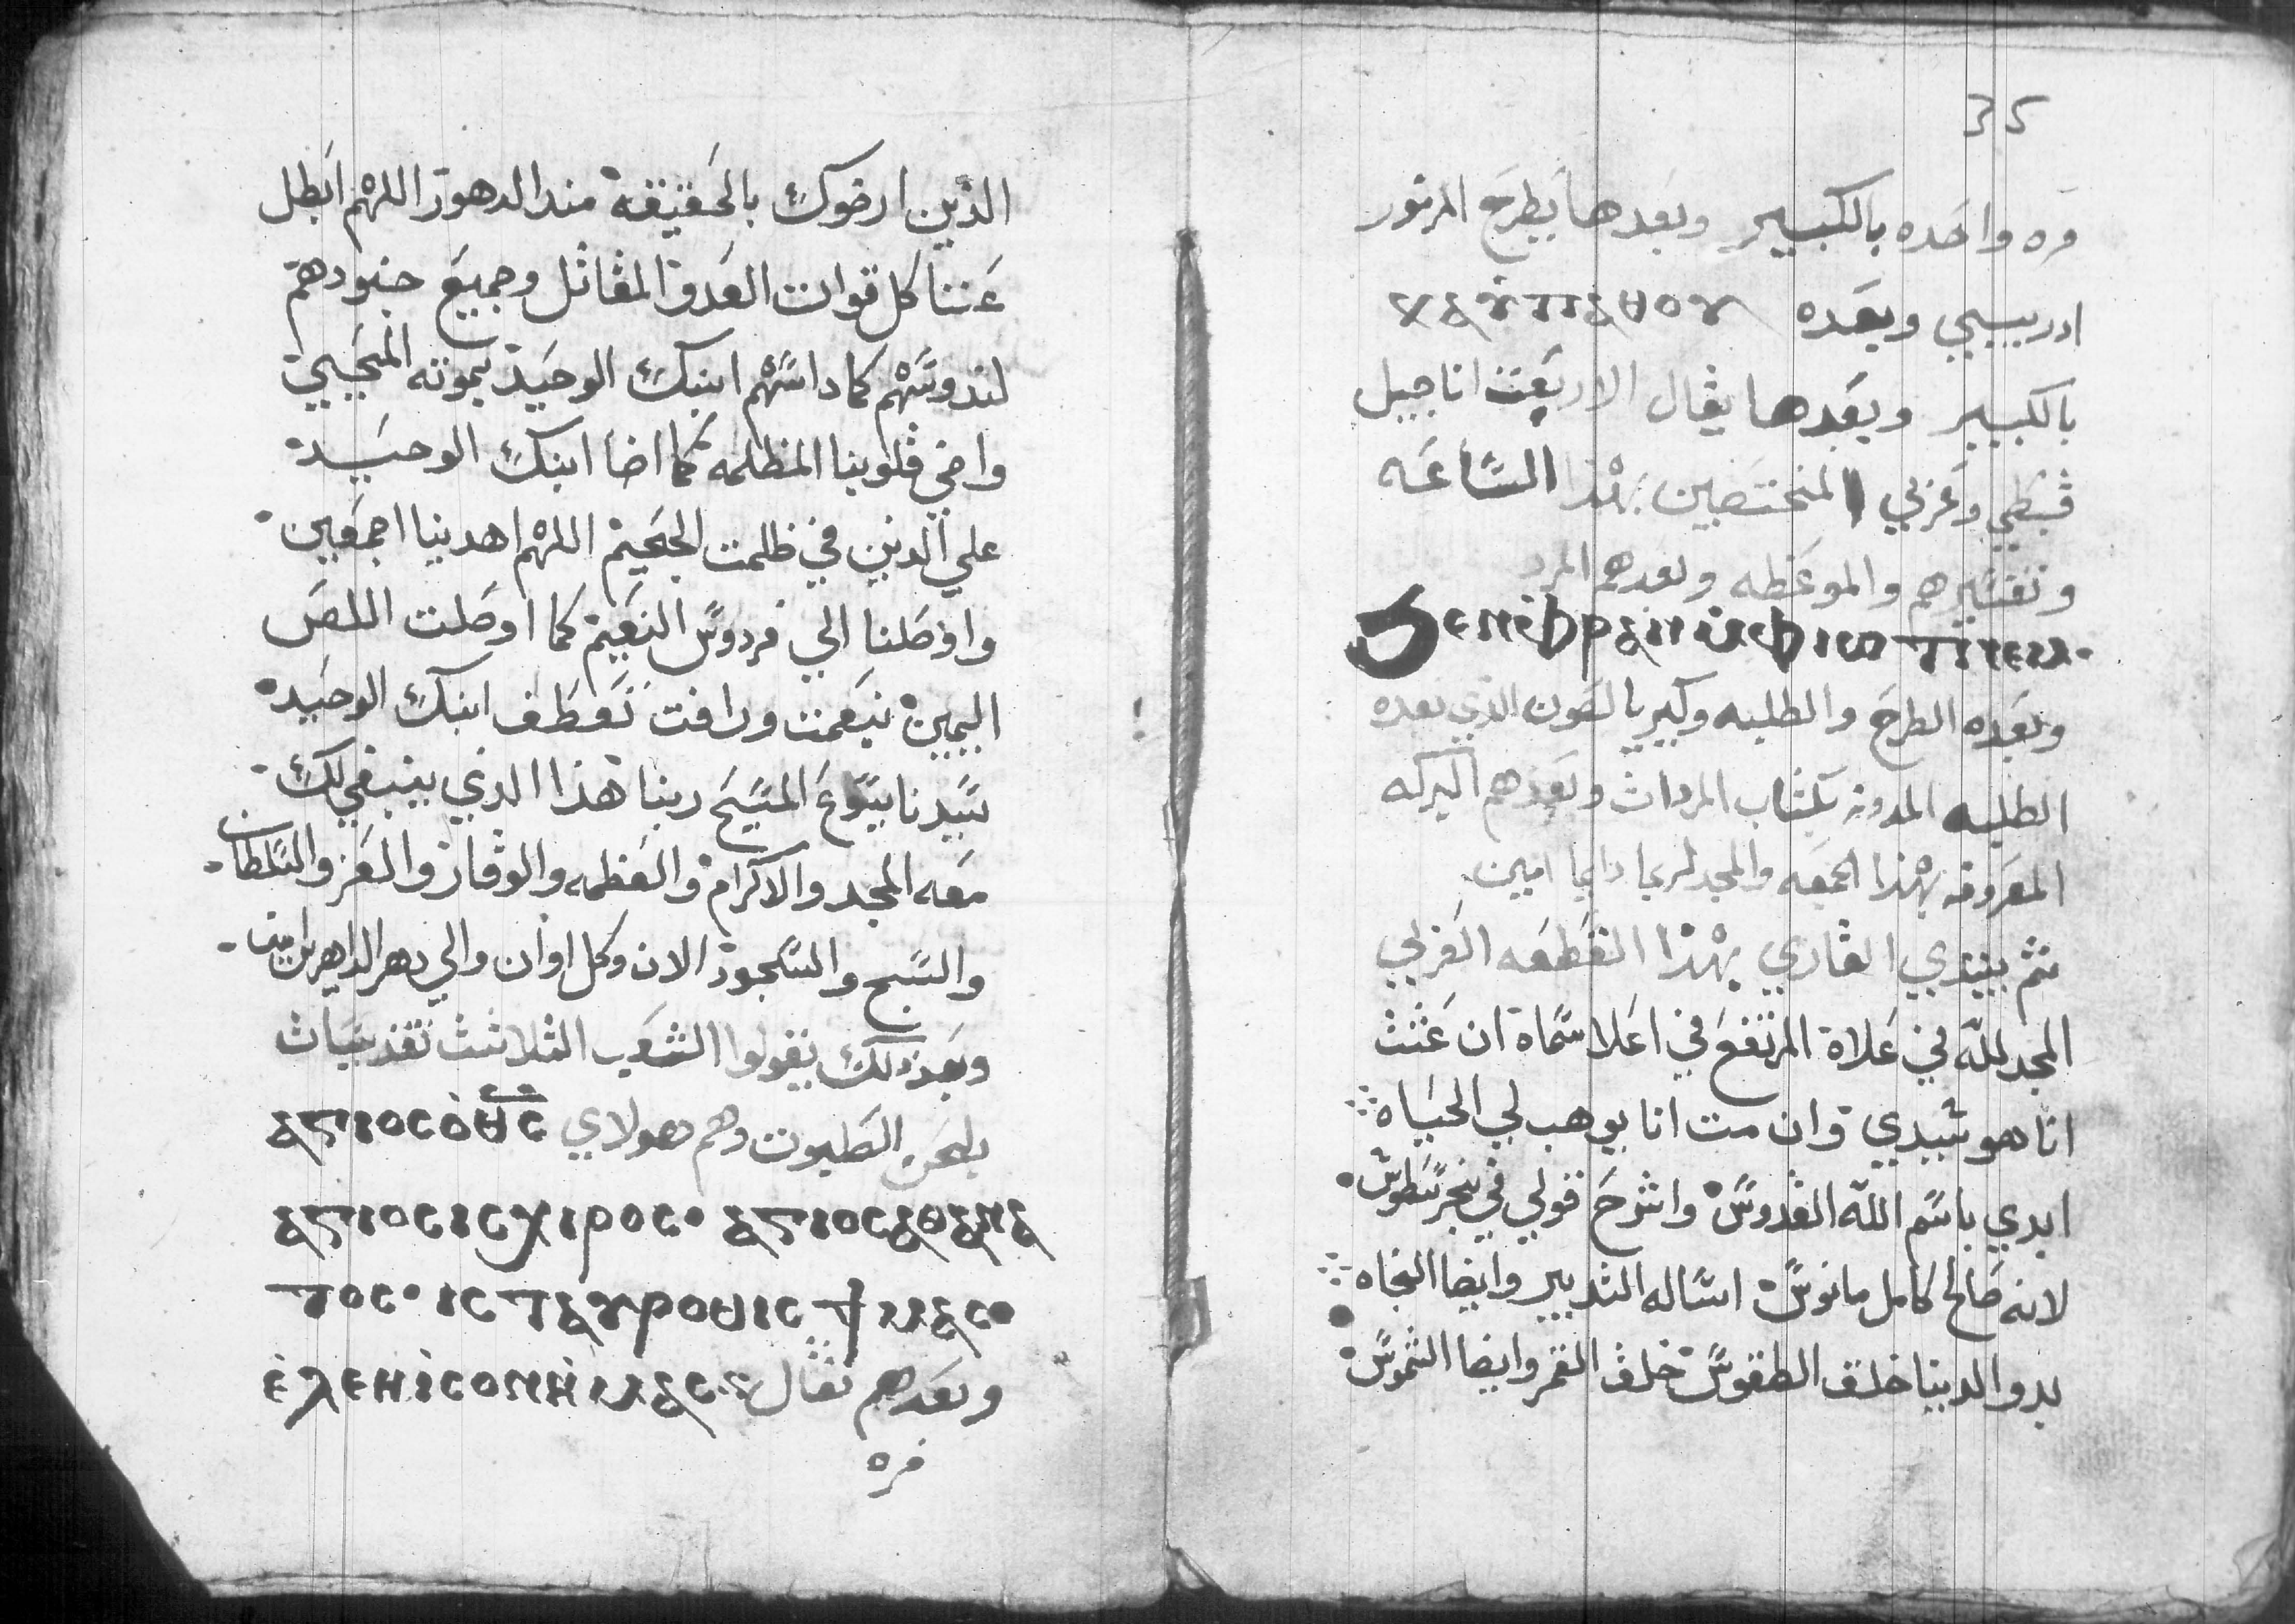 35
مره واحده بالكبير وبعدها يطرح المزمور
ادريبي وبعده
بالكبير وبعدها يقال الاربعت اناجيل
قبطي وعربي المختصين بهذا الساعه
وتفسيرهم والموعظه وبعدهم المرد
وبعده الطرح والطلبه وكيريا ليصون الذي بعده
الطلبه المدونه بكتاب المردات وبعدهم البركه
المعروفه بهذا الجمعه والمجد لربنا دايما امين
ثم يبتدي القاري بهذا القطعه العربي
المجد لله في علاة المرتفع في اعلا سماة ان عشت
انا هو سيدي وان مت انا يوهب لي الحياه
ابدي باسم الله القدوس واشرح قولي في بخرسطوس
لانه صالح كامل مانوس اساله التدبير وايضا النجاه
بدو الدنيا خلق الطقوس خلق القمر وايضا الشموس
الدين ارضوك بالحقيقة مند الدهور اللهم ابطل
عننا كل قوات العدو المقاتل وجميع جنودهم
لندوسهم كما داسهم ابنك الوحيد بموته المحيي
واضي قلوبنا المظلمه كما اضا ابنك الوحيد
علي الدين في ظلمت الجحيم اللهم اهدينا اجمعين
واوصلنا الي فردوس النعيم كما اوصلت اللص
اليمين بنعمت ورافت تعطف ابنك الوحيد
سيدنا يسوع المسيح ربنا هذا الذي ينبغي لك
معه المجد والاكرام والعظمه والوقار والعز والسلطان
والسبح والسجود الان وكل اوان والي دهر الداهرين امين
وبعد ذلك يقولوا الشعب الثلاثت تقديسات
بلحن الصلبوت وهم هولاي ⲁⲅⲓⲟⲥ ⲟ ⲑⲥ
ⲁⲅⲓⲟⲥ ⲓⲥⲭⲩⲣⲟⲥ ⲁⲅⲓⲟⲥ ⲁⲑⲁⲛⲁ
ⲧⲟⲥ ⲓⲥ ⲧⲁⲩⲣⲟⲑⲓⲥ ϯⲙⲁⲥ
ⲉⲗⲉⲏⲥⲟⲛ ⲏⲙⲁⲥ وبعدهم تقال
مره